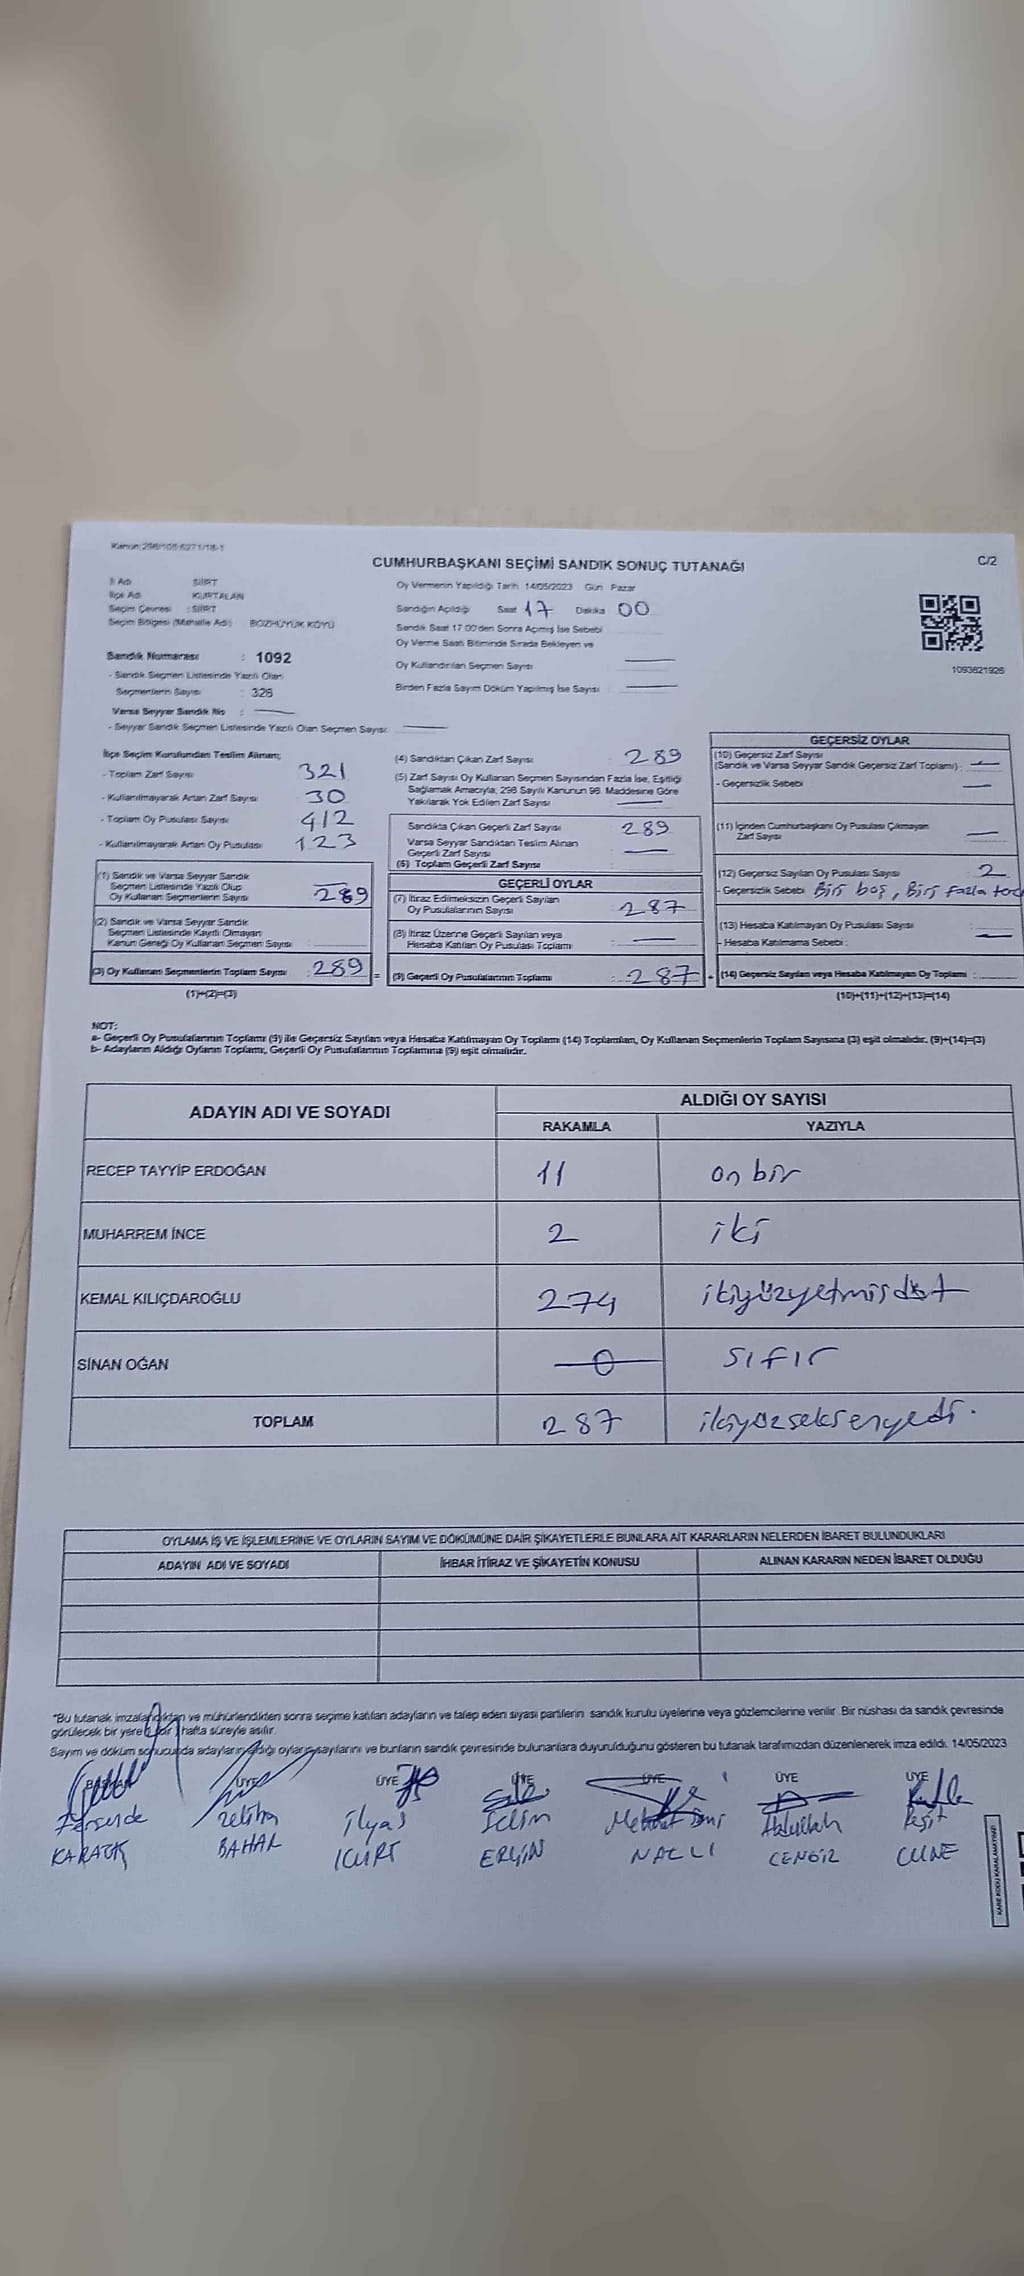 Kanun:298/105-6271/18-1
CUMHURBAŞKANI SEÇİMİ SANDIK SONUÇ TUTANAĞI
C/2
İl Adı SİİRT
İlçe Adı KURTALAN
Seçim Çevresi : SİİRT
Seçim Bölgesi (Mahalle Adı) BOZHÜYÜK KÖYÜ
Sandık Numarası : 1092
- Sandık Seçmen Listesinde Yazılı Olan
Seçmenlerin Sayısı : 326
Varsa Seyyar Sandık No :
- Seyyar Sandık Seçmen Listesinde Yazılı Olan Seçmen Sayısı:
Oy Vermenin Yapıldığı Tarih 14/05/2023 Gün Pazar
Sandığın Açıldığı Saat 17 Dakika 00
Sandık Saat 17.00'den Sonra Açılmış İse Sebebi
Oy Verme Saati Bitiminde Sırada Bekleyen ve
Oy Kullandırılan Seçmen Sayısı
Birden Fazla Sayım Döküm Yapılmış İse Sayısı
1093821926
İlçe Seçim Kurulundan Teslim Alınan;
- Toplam Zarf Sayısı 321
- Kullanılmayarak Artan Zarf Sayısı 30
- Toplam Oy Pusulası Sayısı 412
- Kullanılmayarak Artan Oy Pusulası 123
(1) Sandık ve Varsa Seyyar Sandık
Seçmen Listesinde Yazılı Olup
Oy Kullanan Seçmenlerin Sayısı : 289
(2) Sandık ve Varsa Seyyar Sandık
Seçmen Listesinde Kayıtlı Olmayan
Kanun Gereği Oy Kullanan Seçmen Sayısı :
(3) Oy Kullanan Seçmenlerin Toplam Sayısı : 289 =
(1)+(2)=(3)
(4) Sandıktan Çıkan Zarf Sayısı : 289
(5) Zarf Sayısı Oy Kullanan Seçmen Sayısından Fazla İse, Eşitliği
Sağlamak Amacıyla, 298 Sayılı Kanunun 98. Maddesine Göre
Yakılarak Yok Edilen Zarf Sayısı :
Sandıkta Çıkan Geçerli Zarf Sayısı : 289
Varsa Seyyar Sandıktan Teslim Alınan
Geçerli Zarf Sayısı :
(6) Toplam Geçerli Zarf Sayısı :
GEÇERLİ OYLAR
(7) İtiraz Edilmeksizin Geçerli Sayılan
Oy Pusulalarının Sayısı : 287
(8) İtiraz Üzerine Geçerli Sayılan veya
Hesaba Katılan Oy Pusulası Toplamı :
(9) Geçerli Oy Pusulalarının Toplamı : 287 +
GEÇERSİZ OYLAR
(10) Geçersiz Zarf Sayısı
(Sandık ve Varsa Seyyar Sandık Geçersiz Zarf Toplamı) :
- Geçersizlik Sebebi
(11) İçinden Cumhurbaşkanı Oy Pusulası Çıkmayan
Zarf Sayısı :
(12) Geçersiz Sayılan Oy Pusulası Sayısı : 2
- Geçersizlik Sebebi Biri boş, Biri fazla
(13) Hesaba Katılmayan Oy Pusulası Sayısı :
- Hesaba Katılmama Sebebi :
(14) Geçersiz Sayılan veya Hesaba Katılmayan Oy Toplamı :
(10)+(11)+(12)+(13)=(14)
NOT:
a- Geçerli Oy Pusulalarının Toplamı (9) ile Geçersiz Sayılan veya Hesaba Katılmayan Oy Toplamı (14) Toplamları, Oy Kullanan Seçmenlerin Toplam Sayısına (3) eşit olmalıdır. (9)+(14)=(3)
b- Adayların Aldığı Oyların Toplamı, Geçerli Oy Pusulalarının Toplamına (9) eşit olmalıdır.
ADAYIN ADI VE SOYADI
ALDIĞI OY SAYISI
RAKAMLA YAZIYLA
RECEP TAYYİP ERDOĞAN 11 on bir
MUHARREM İNCE 2 iki
KEMAL KILIÇDAROĞLU 274 ikiyüzyetmişdört
SİNAN OĞAN 0 sıfır
TOPLAM 287 ikiyüzseksenyedi.
OYLAMA İŞ VE İŞLEMLERİNE VE OYLARIN SAYIM VE DÖKÜMÜNE DAİR ŞİKAYETLERLE BUNLARA AİT KARARLARIN NELERDEN İBARET BULUNDUKLARI
ADAYIN ADI VE SOYADI İHBAR İTİRAZ VE ŞİKAYETİN KONUSU ALINAN KARARIN NEDEN İBARET OLDUĞU
*Bu tutanak imzalandıktan ve mühürlendikten sonra seçime katılan adayların ve talep eden siyasi partilerin sandık kurulu üyelerine veya gözlemcilerine verilir. Bir nüshası da sandık çevresinde
görülecek bir yere bir hafta süreyle asılır.
Sayım ve döküm sonucunda adayların aldığı oyların sayılarını ve bunların sandık çevresinde bulunanlara duyurulduğunu gösteren bu tutanak tarafımızdan düzenlenerek imza edildi. 14/05/2023
BAŞKAN ÜYE ÜYE ÜYE ÜYE ÜYE ÜYE
Zeliha İlyas Abdullah Reşit
BAHAR KURT NAZLI CENGİZ
KARE KODU KARALAMAYINIZ